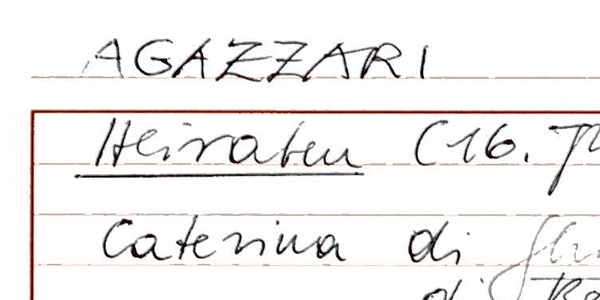 AGAZZARI
Heiraten (16.
Caterina di
di